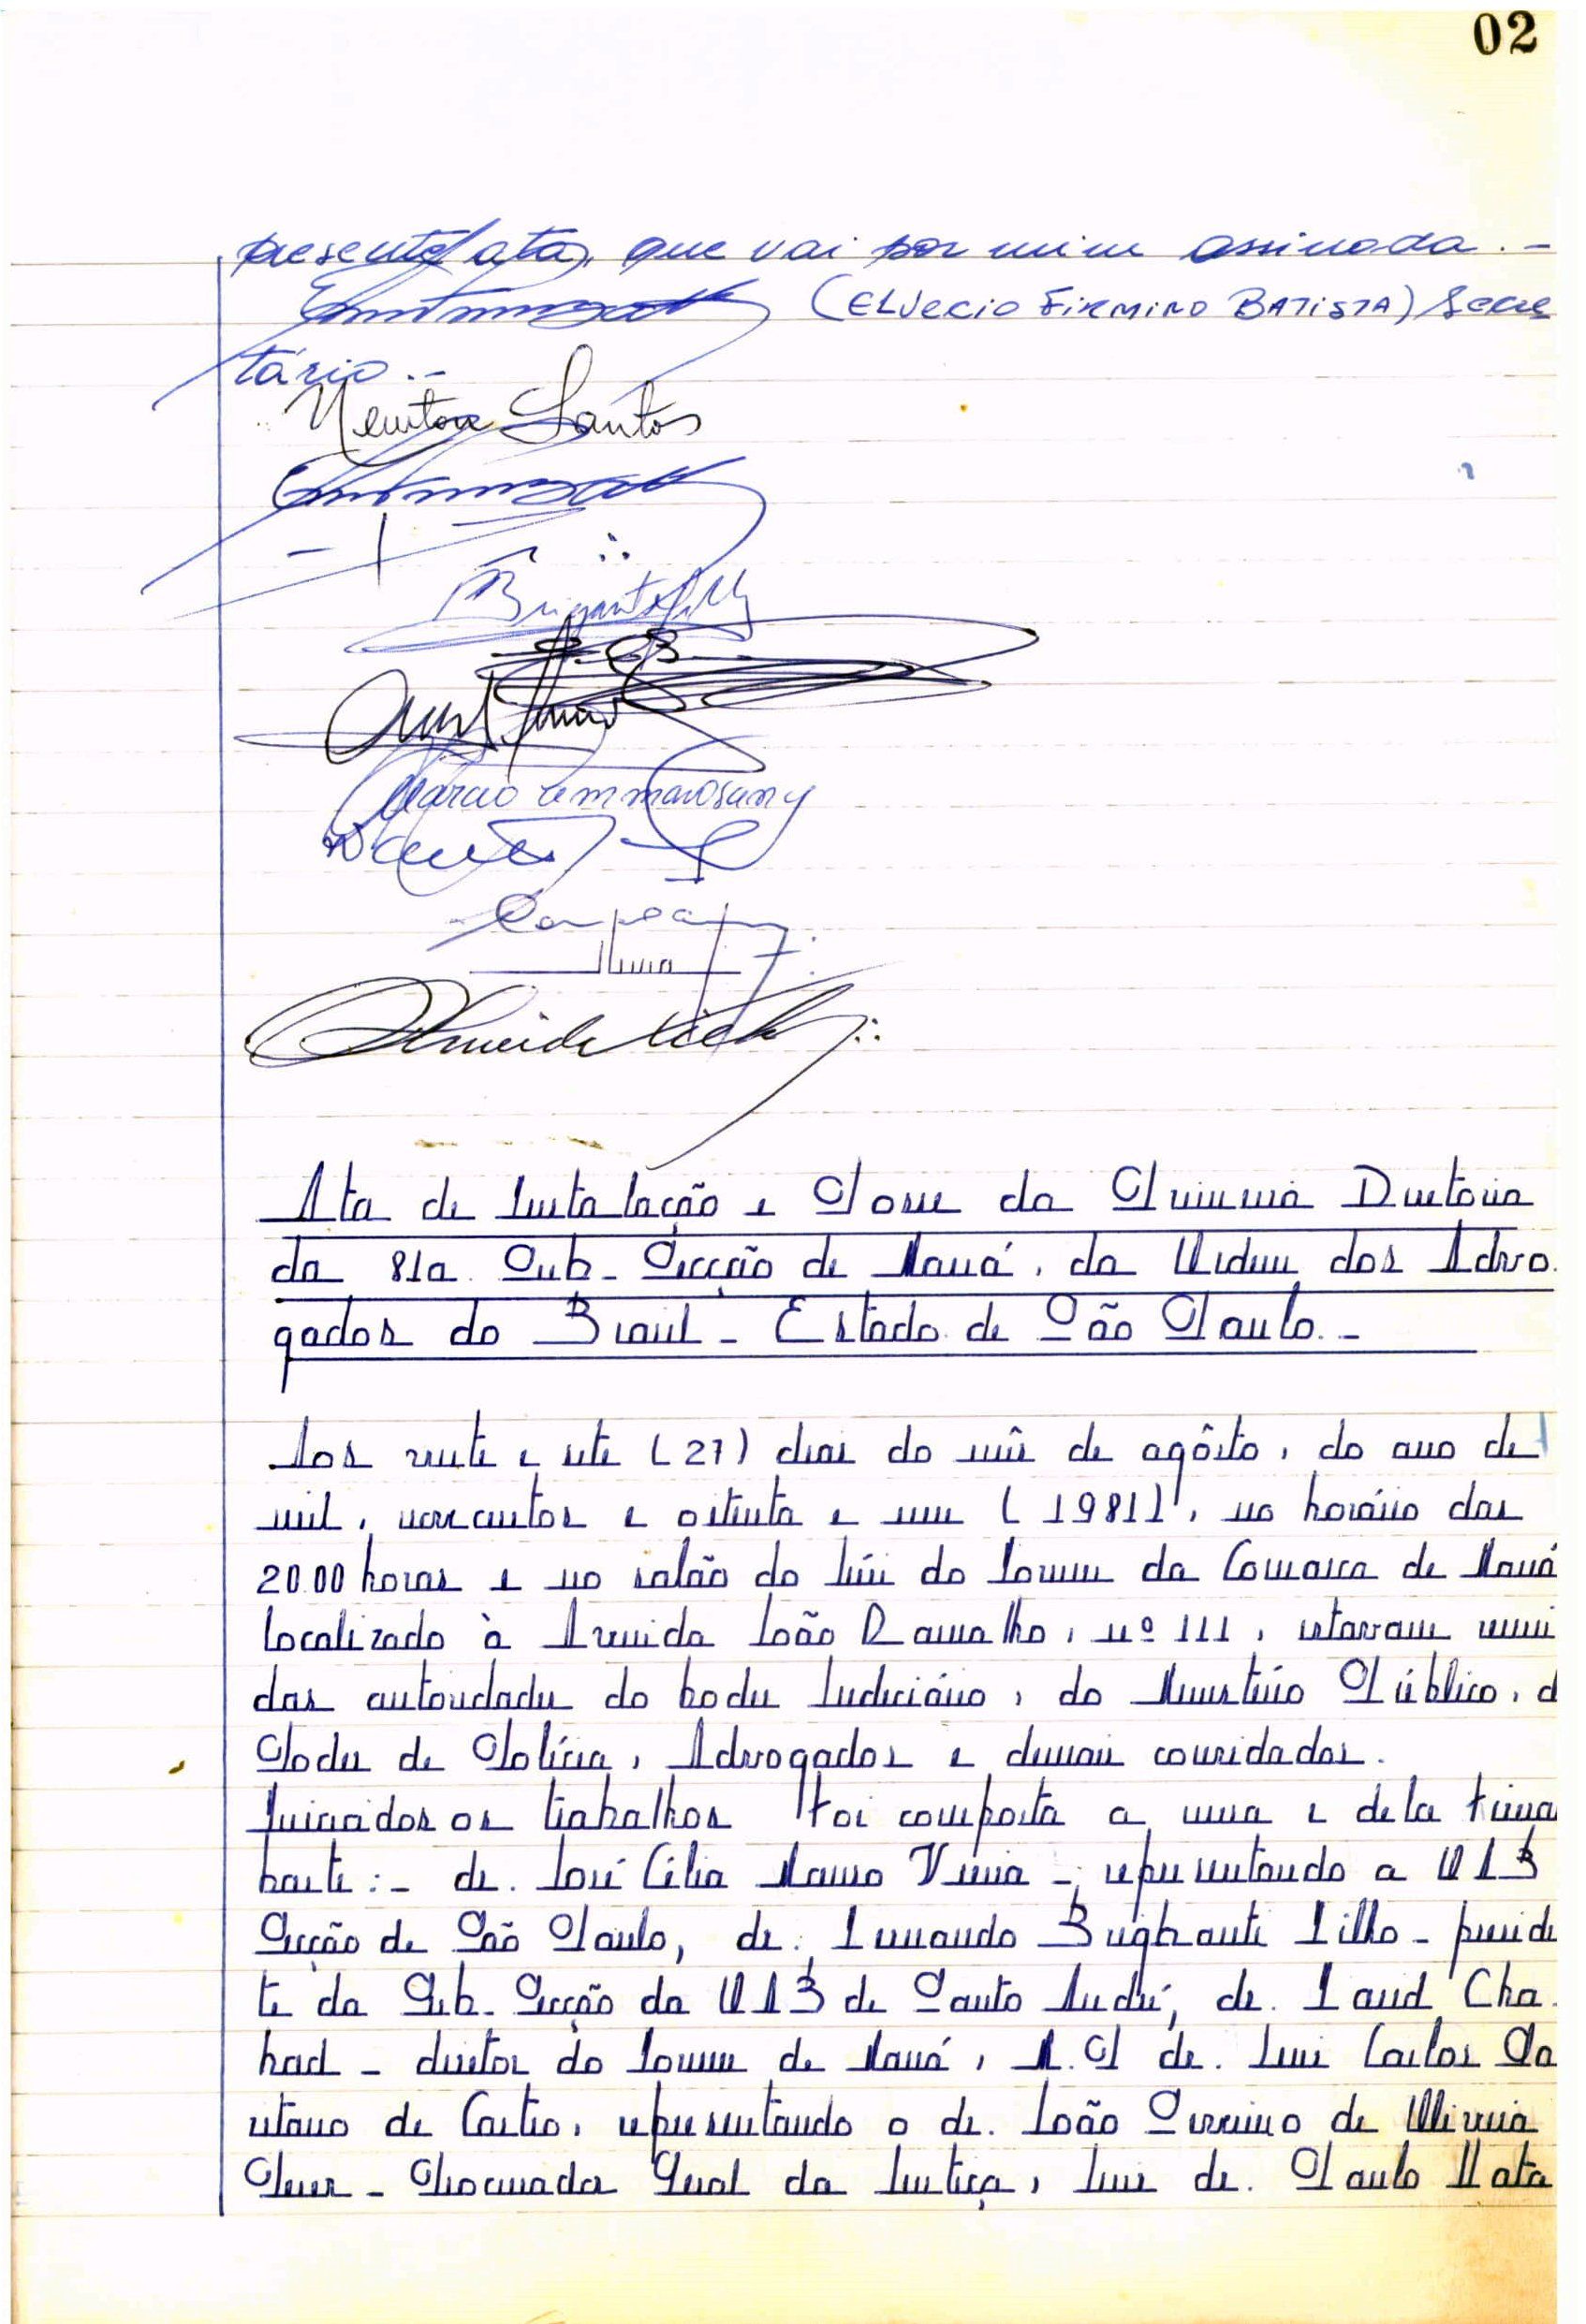 02
presente ata, que vai por mim assinada. -
(ELVECIO FIRMINO BATISTA) Secre
tário. -
Newton Santos
Ata de Instalação e Posse da Primeira Diretoria
da 81a. Sub-Secção de Mauá, da Ordem dos Advo.
gados do Brasil - Estado de São Paulo. -
Aos vinte e sete (27) dias do mês de agôsto, do ano de
mil, novecentos e oitenta e um (1981), no horário das
20.00 horas e no salão do Júri do Forum da Comarca de Mauá
localizado à Avenida João Ramalho, nº 111, estavam reuni
das autoridades do Poder Judiciário, do Ministério Público, d
Poder de Polícia, Advogados e demais convidados.
Iniciados os trabalhos foi composta a mesa e dela fizera
parte: - dr. José Célia Mauro Vieira - representando a OAB
Secção de São Paulo, dr. Fernando Brigante Filho - preside
te da Sub-Secção da OAB de Santo André, dr. Faud Cha
had - diretor do Forum de Mauá, M.P dr. Luiz Carlos
de Castro, representando o dr. João Severino de Oliveira
Peres - Procurador Geral da Justiça, Juiz dr. Paulo Nata